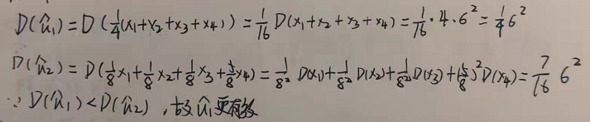 D(û₁) = D(¼(x₁+x₂+x₃+x₄)) = 1/16 D(x₁+x₂+x₃+x₄) = 1/16 · 4 · 6² = ¼6²
D(û₂) = D(⅛x₁+⅛x₂+⅛x₃+⅝x₄) = 1/8² D(x₁)+1/8² D(x₂)+1/8² D(x₃)+(⅝)² D(x₄) = 7/16 6²
∵ D(û₁) < D(û₂) , 故 û₁更有效